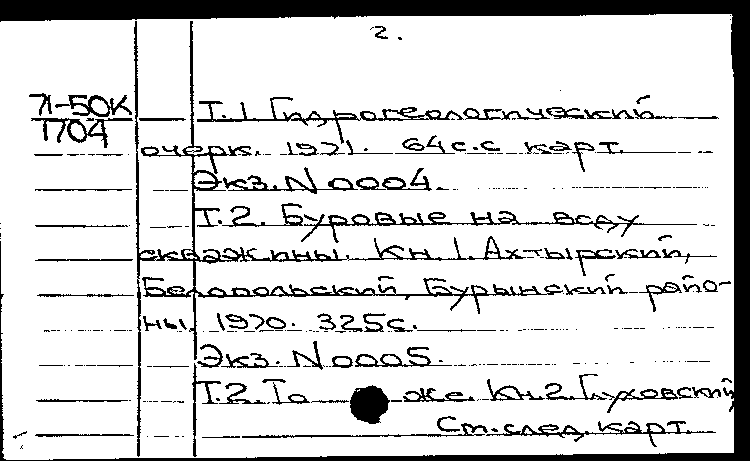 2.
71-50К
1704
Т.1. Гидрогеологический
очерк. 1971. 64с. с карт.
Экз. N 0004.
Т.2. Буровые на воду
скважины. Кн. 1. Ахтырский,
Белопольский, Бурынский райо-
ны. 1970. 325с.
Экз. N 0005.
Т.2. То же. Кн. 2. Глуховский
См. след. карт.